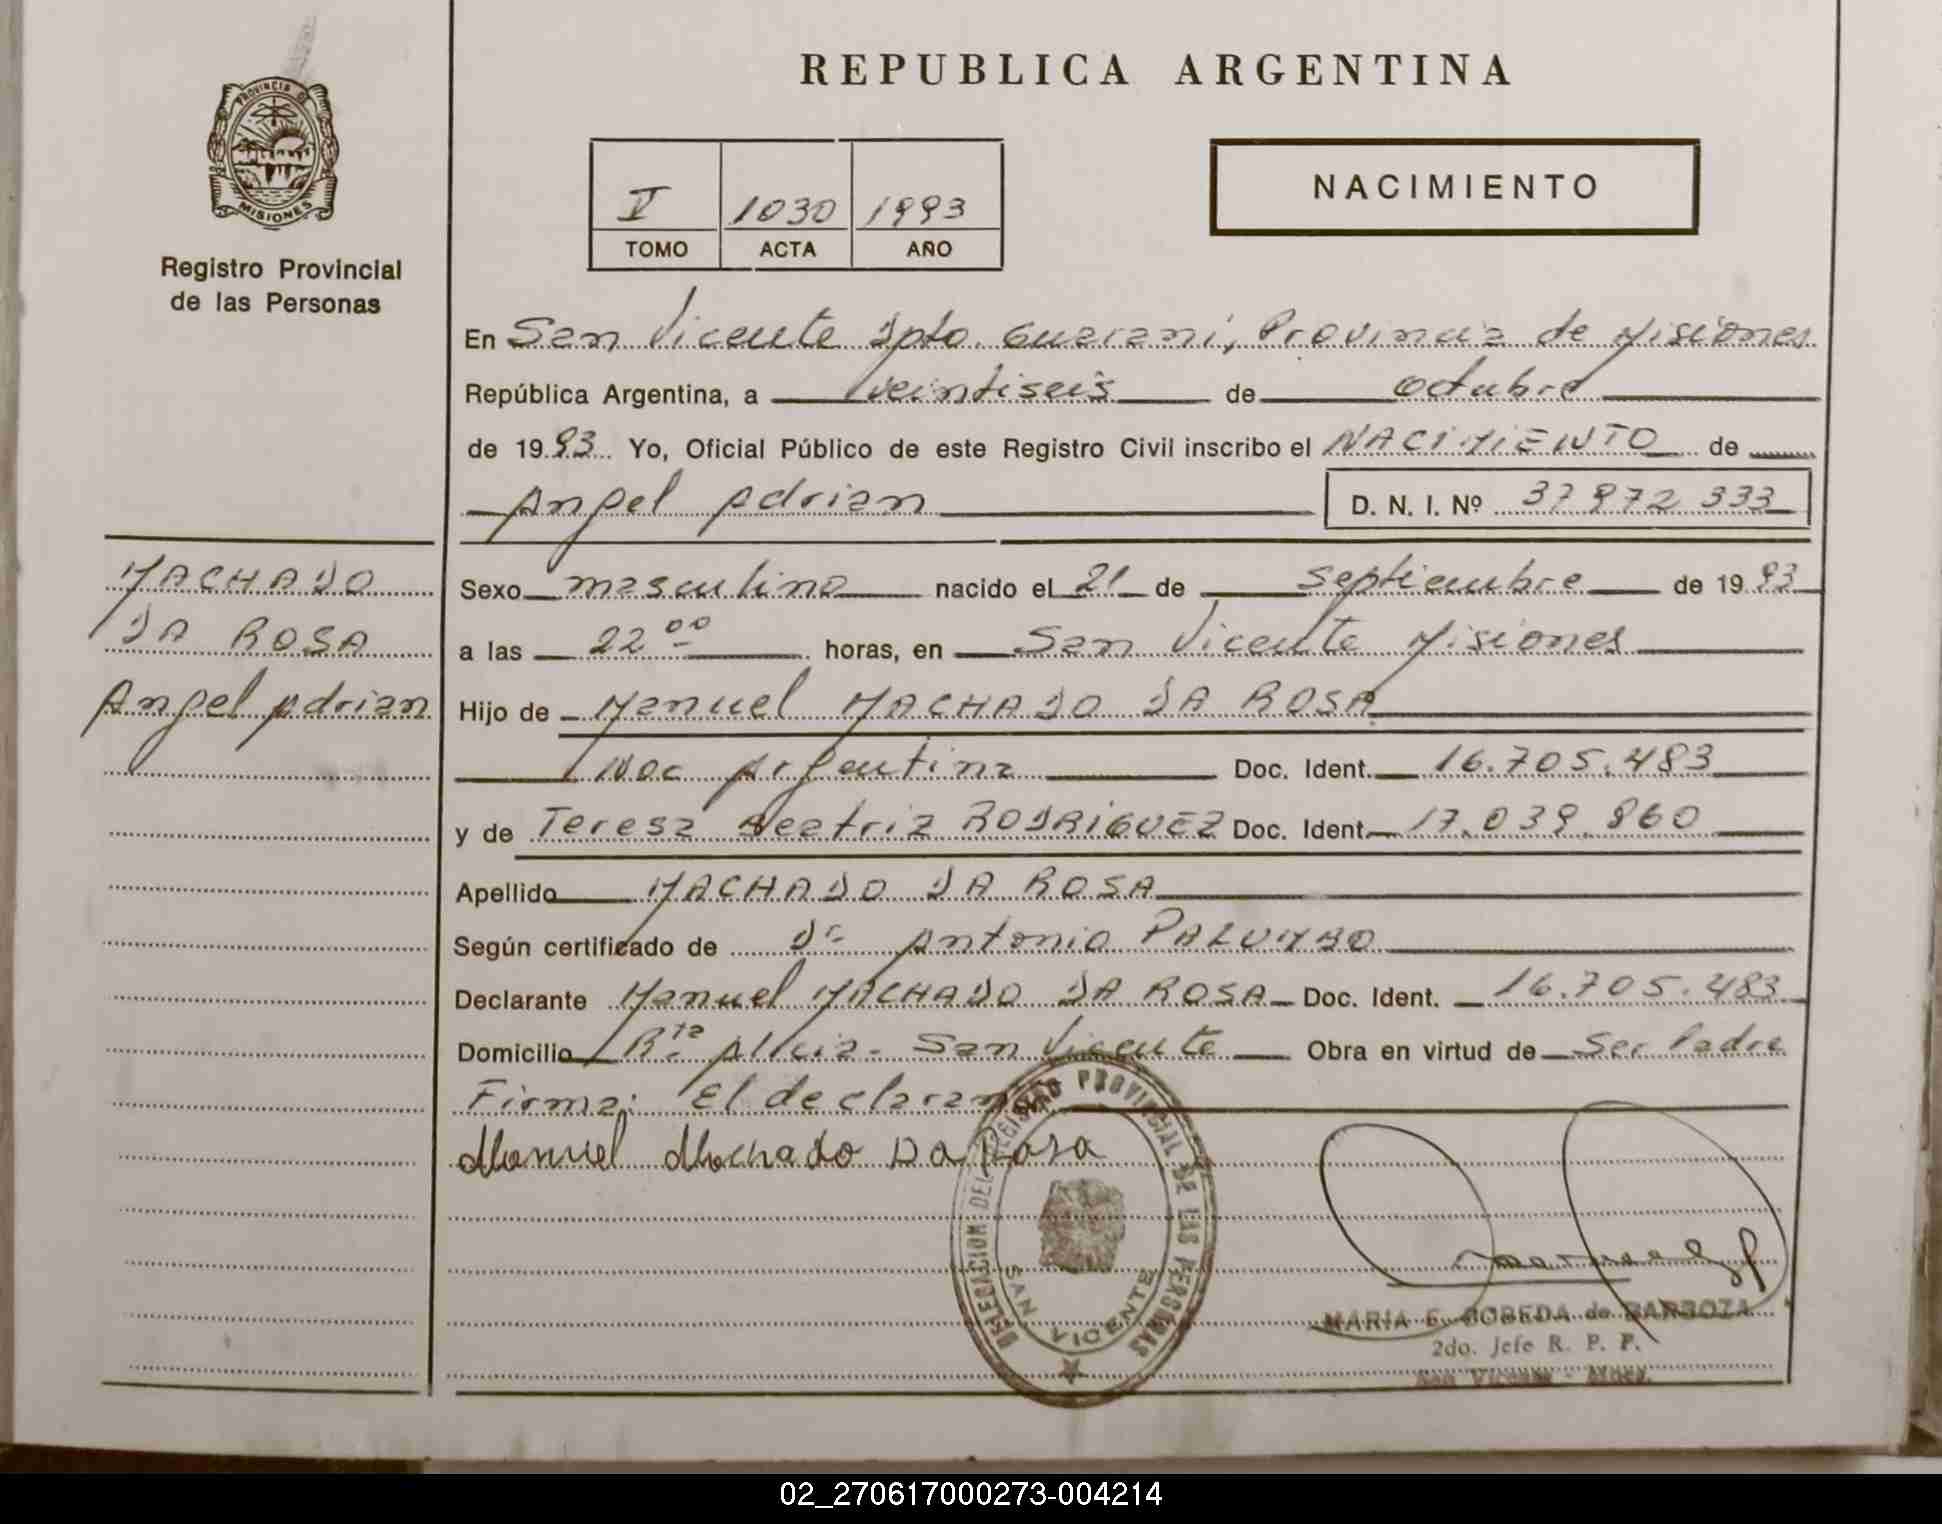 REPUBLICA ARGENTINA
PROVINCIA DE
MISIONES
Registro Provincial
de las Personas
V 1030 1993
TOMO ACTA AÑO
NACIMIENTO
En San Vicente Dpto. Guarani, Provincia de Misiones
República Argentina, a veintiseis de octubre
de 1993 Yo, Oficial Público de este Registro Civil inscribo el NACIMIENTO de
Angel Adrian D. N. I. Nº 37 972 333
MACHADO
DA ROSA
Angel Adrian
Sexo masculino nacido el 21 de septiembre de 1993
a las 22 00 horas, en San Vicente Misiones
Hijo de Manuel MACHADO DA ROSA
Nac Argentina Doc. Ident. 16.705.483
y de Teresa Beatriz RODRIGUEZ Doc. Ident. 17.039.860
Apellido MACHADO DA ROSA
Según certificado de Dr Antonio PALUMBO
Declarante Manuel MACHADO DA ROSA Doc. Ident. 16.705.483
Domicilio Rta San Vicente Obra en virtud de Ser Padre
Firma: El declaran
Manuel Machado Da Rosa
DELEGACION DEL REGISTRO PROVINCIAL DE LAS PERSONAS
SAN VICENTE
MARIA E. COBEDA de BARBOZA
2do. Jefe R. P. P.
San Vicente - Mnes.
02_270617000273-004214